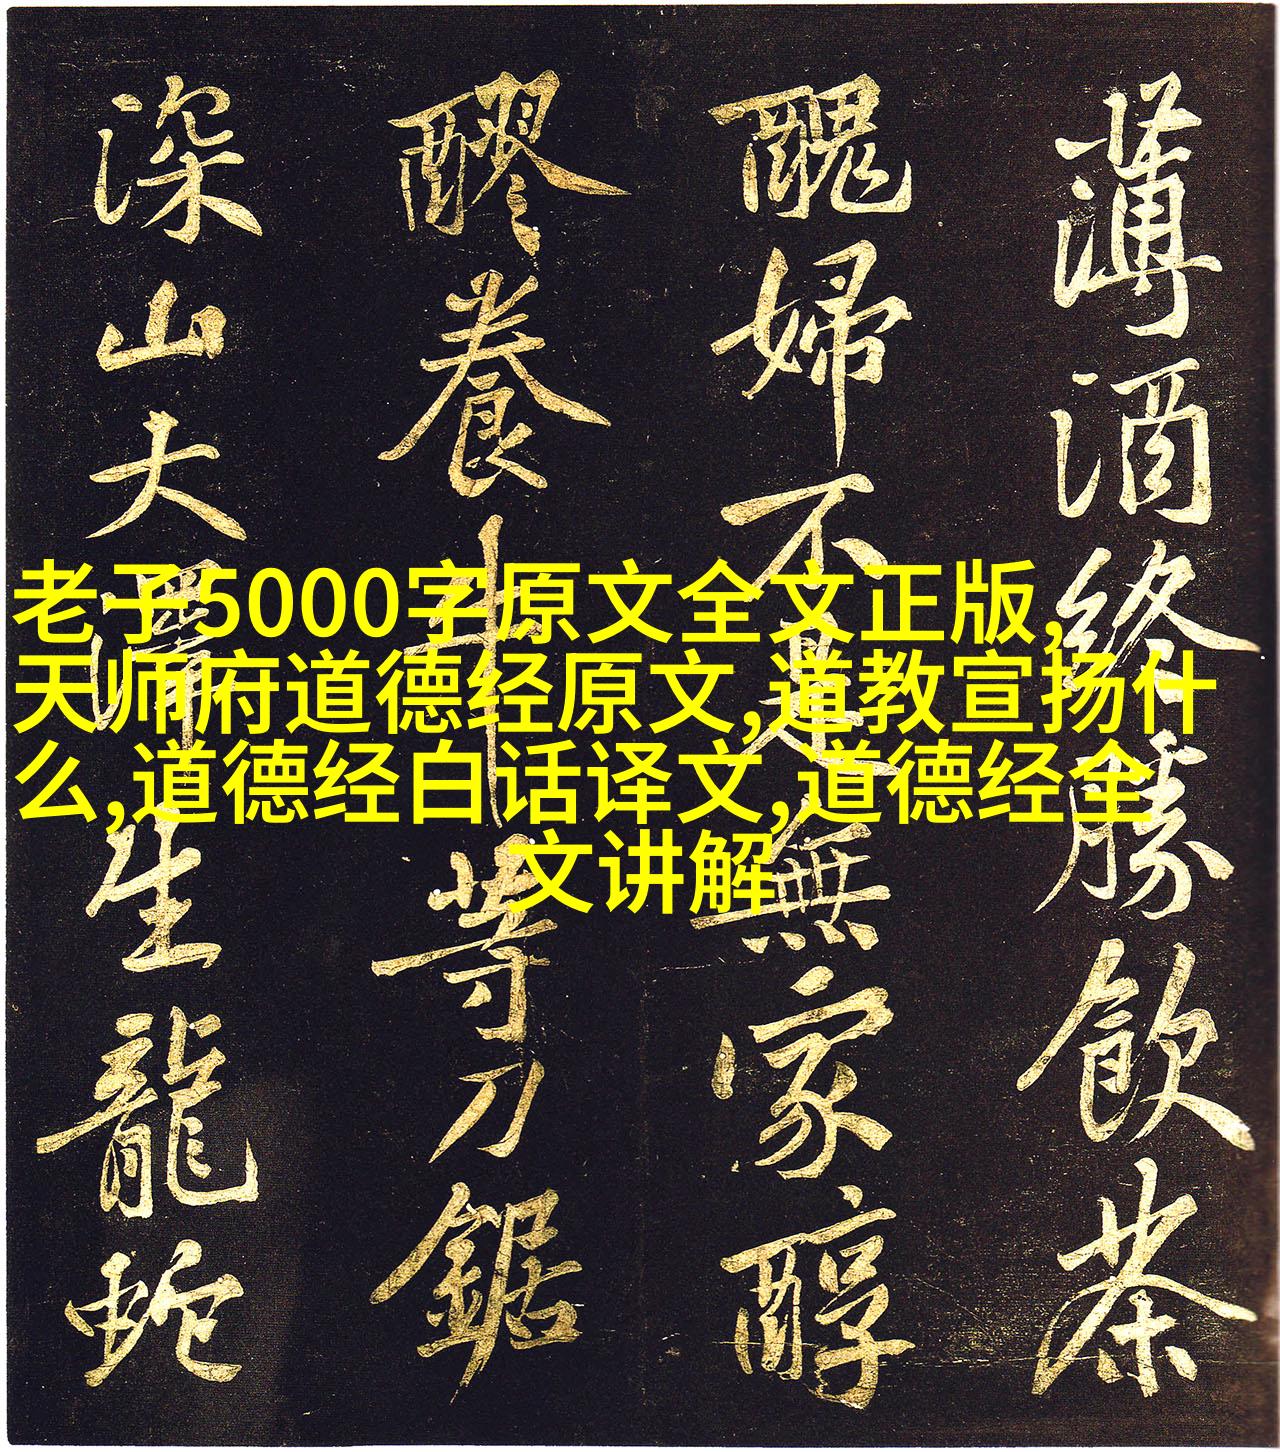 薄酒終勝飲茶
醜婦不是無家醇
醪養牛等刀鋸
深山大澤生龍蛇
老子5000字原文全文正版,
天师府道德经原文,道教宣扬什
么,道德经白话译文,道德经全
文讲解